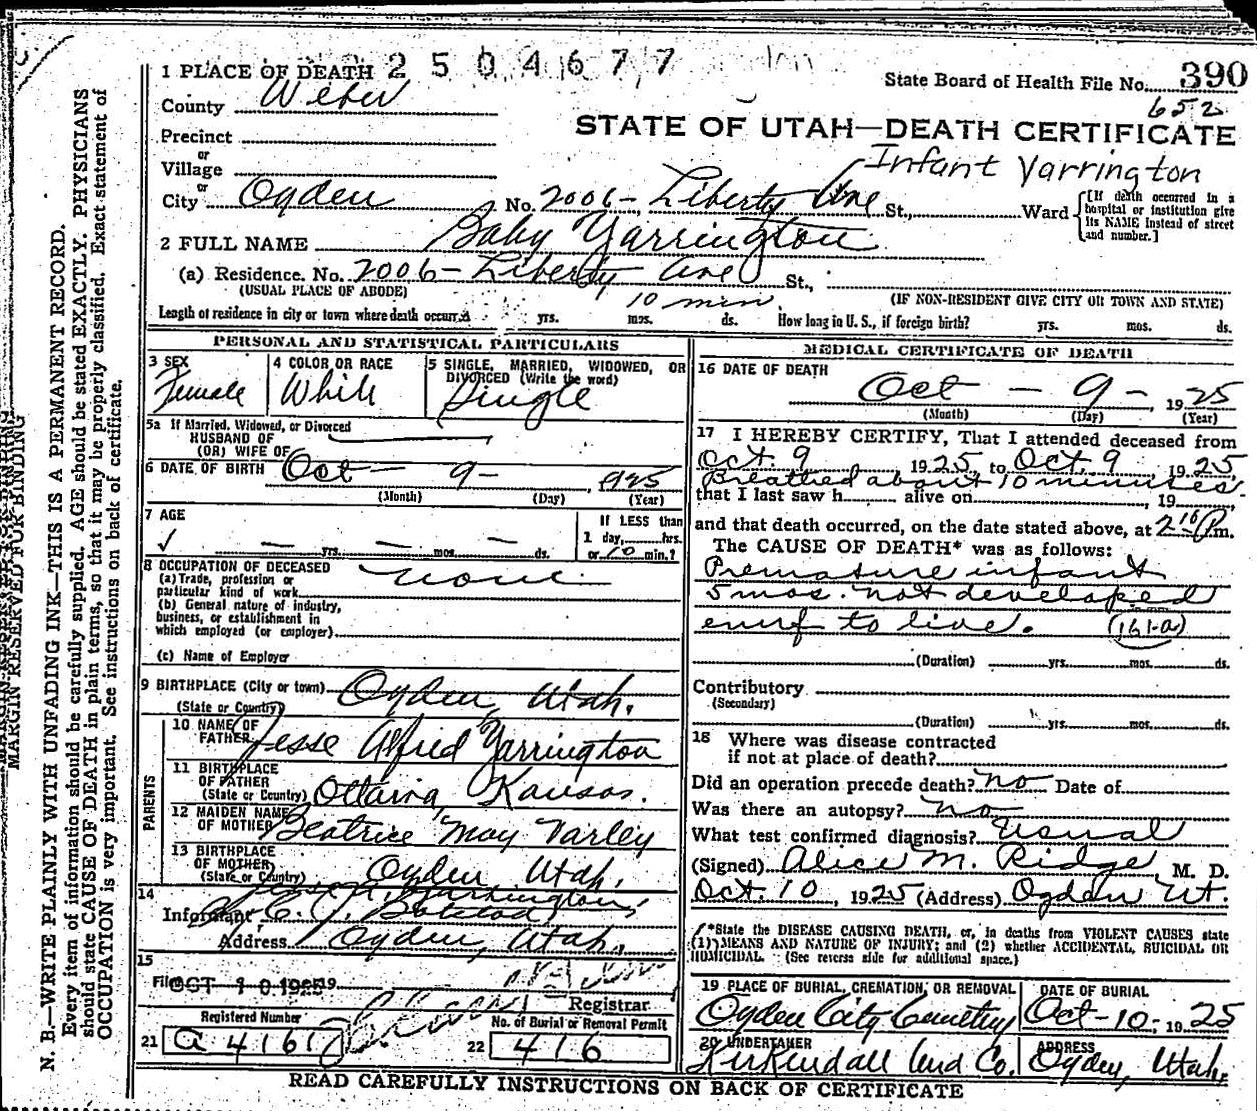 2504677
1 PLACE OF DEATH
State Board of Health File No. 390
652
County Weber
STATE OF UTAH—DEATH CERTIFICATE
Precinct
or
Village
Infant Yarrington
or
City Ogden No. 2006 - Liberty Ave St., Ward
[If death occurred in a hospital or institution give its NAME instead of street and number.]
2 FULL NAME Baby Yarrington
(a) Residence. No. 2006 - Liberty Ave St.,
(USUAL PLACE OF ABODE)
(IF NON-RESIDENT GIVE CITY OR TOWN AND STATE)
10 min.
Length of residence in city or town where death occurred yrs. mos. ds. How long in U. S., if foreign birth? yrs. mos. ds.
PERSONAL AND STATISTICAL PARTICULARS
3 SEX
Female
4 COLOR OR RACE
White
5 SINGLE, MARRIED, WIDOWED, OR
DIVORCED (Write the word)
Single
5a If Married, Widowed, or Divorced
HUSBAND OF
(OR) WIFE OF
6 DATE OF BIRTH Oct - 9 - 1925
(Month) (Day) (Year)
7 AGE
If LESS than
1 day, hrs.
yrs. mos. ds. or 10 min.?
8 OCCUPATION OF DECEASED
(a) Trade, profession or
particular kind of work none
(b) General nature of industry,
business, or establishment in
which employed (or employer)
(c) Name of Employer
9 BIRTHPLACE (City or town) Ogden, Utah.
(State or Country)
PARENTS
10 NAME OF
FATHER Jesse Alfred Yarrington
11 BIRTHPLACE
OF FATHER
(State or Country) Ottawa, Kansas.
12 MAIDEN NAME
OF MOTHER Beatrice May Varley
13 BIRTHPLACE
OF MOTHER
(State or Country) Ogden Utah.
14
Jesse A. Yarrington
Informant
Address Ogden, Utah.
15
Filed OCT 10 1925 19
Registrar
Registered Number
21 a 4161
No. of Burial or Removal Permit
22 416
MEDICAL CERTIFICATE OF DEATH
16 DATE OF DEATH
Oct - 9 - 1925
(Month) (Day) (Year)
17 I HEREBY CERTIFY, That I attended deceased from
Oct. 9, 1925, to Oct. 9, 1925
Breathed about 10 minutes.
that I last saw h alive on 19
and that death occurred, on the date stated above, at 2 10 P.m.
The CAUSE OF DEATH* was as follows:
Premature infant
5 mos. not developed
enuf to live. (161-a)
(Duration) yrs. mos. ds.
Contributory
(Secondary)
(Duration) yrs. mos. ds.
18 Where was disease contracted
if not at place of death?
Did an operation precede death? no Date of
Was there an autopsy? no
What test confirmed diagnosis? Usual
(Signed) Alice M. Ridge, M. D.
Oct. 10, 1925 (Address) Ogden Ut.
*State the DISEASE CAUSING DEATH, or, in deaths from VIOLENT CAUSES state
(1) MEANS AND NATURE OF INJURY; and (2) whether ACCIDENTAL, SUICIDAL OR
HOMICIDAL. (See reverse side for additional space.)
19 PLACE OF BURIAL, CREMATION, OR REMOVAL
Ogden City Cemetry
DATE OF BURIAL
Oct - 10, 1925
20 UNDERTAKER
Kirkendall Und Co.
ADDRESS
Ogden, Utah.
READ CAREFULLY INSTRUCTIONS ON BACK OF CERTIFICATE
MARGIN RESERVED FOR BINDING
N. B.—WRITE PLAINLY WITH UNFADING INK—THIS IS A PERMANENT RECORD.
Every item of information should be carefully supplied. AGE should be stated EXACTLY. PHYSICIANS
should state CAUSE OF DEATH in plain terms, so that it may be properly classified. Exact statement of
OCCUPATION is very important. See instructions on back of certificate.